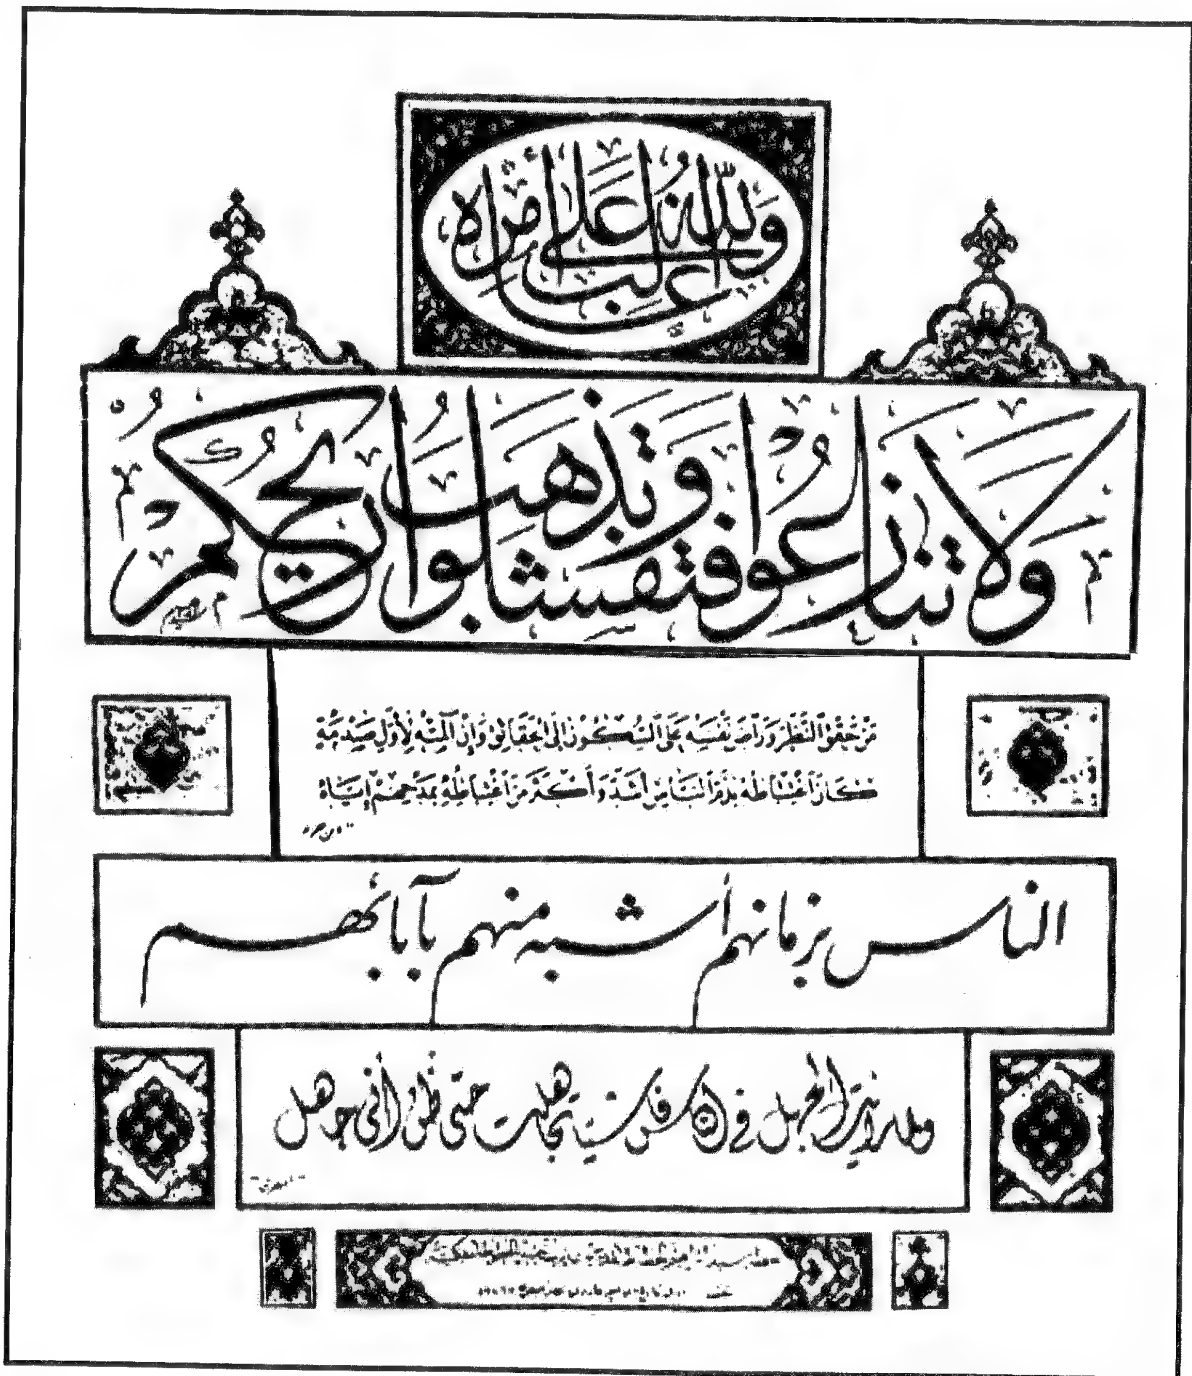 وَاللّٰهُ غَالِبٌ عَلَىٰ أَمْرِهِ
وَلَا تَنَازَعُوا فَتَفْشَلُوا وَتَذْهَبَ رِيحُكُمْ
مَنْ حَقَّقَ النَّظَرَ وَرَاضَ نَفْسَهُ عَلَى السُّكُونِ إِلَى الْحَقَائِقِ وَإِنْ آلَمَتْهُ لِأَوَّلِ صَدْمَةٍ
كَانَ اغْتِبَاطُهُ بِذَمِّ النَّاسِ أَشَدَّ وَأَكْثَرَ مِنَ اغْتِبَاطِهِ بِمَدْحِهِمْ إِيَّاهُ
"ابن حزم"
الناس بزمانهم أشبه منهم بآبائهم
ولما رأيت الجهل في الناس فاشيا تجاهلت حتى ظن أني جاهل
"المعري"